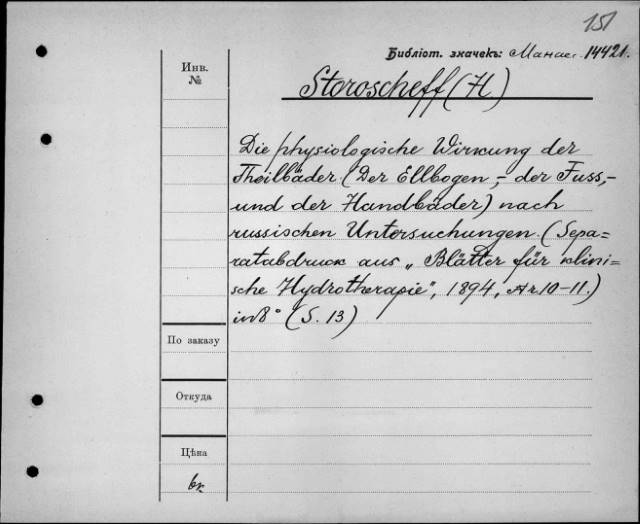 151
Библіот. значекъ: Манас. 14421.
Инв.
№
Storoscheff (H)
Die physiologische Wirkung der
Theilbäder (Der Ellbogen,- der Fuss,-
und der Handbäder) nach
russischen Untersuchungen. (Sepa=
ratabdruck aus „Blätter für klini=
sche Hydrotherapie", 1894, Nr. 10-11.)
in 8° (S. 13)
По заказу
Откуда
Цѣна